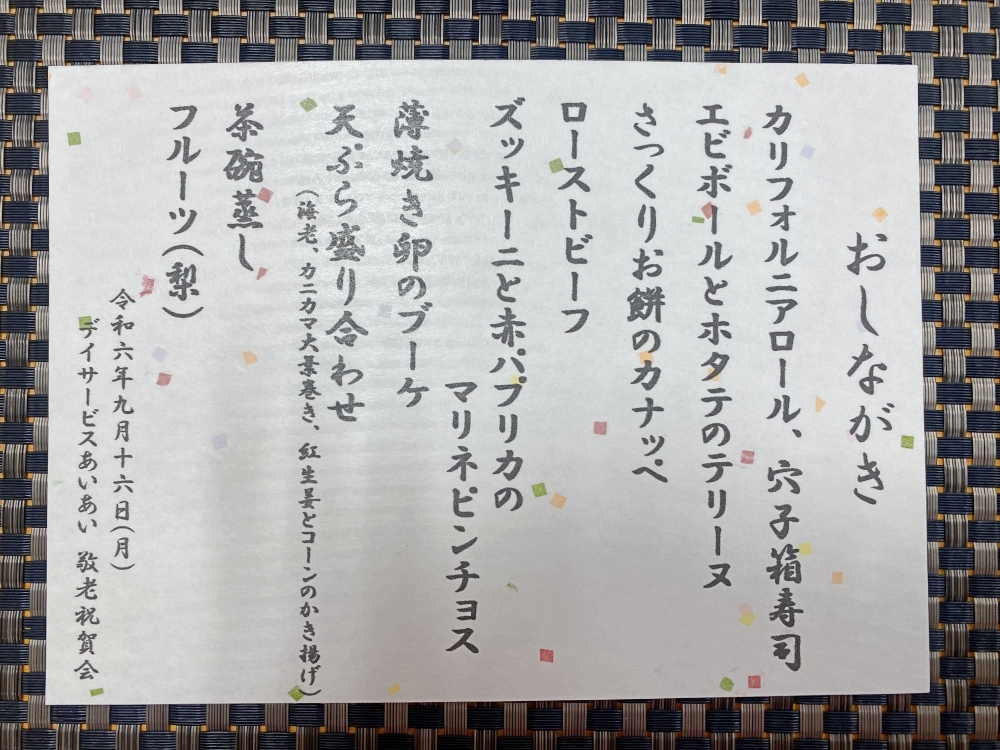 おしながき
カリフォルニアロール、穴子箱寿司
エビボールとホタテのテリーヌ
さっくりお餅のカナッペ
ローストビーフ
ズッキーニと赤パプリカの
マリネピンチョス
薄焼き卵のブーケ
天ぷら盛り合わせ
(海老、カニカマ大葉巻き、紅生姜とコーンのかき揚げ)
茶碗蒸し
フルーツ(梨)
令和六年九月十六日(月)
デイサービスあいあい 敬老祝賀会